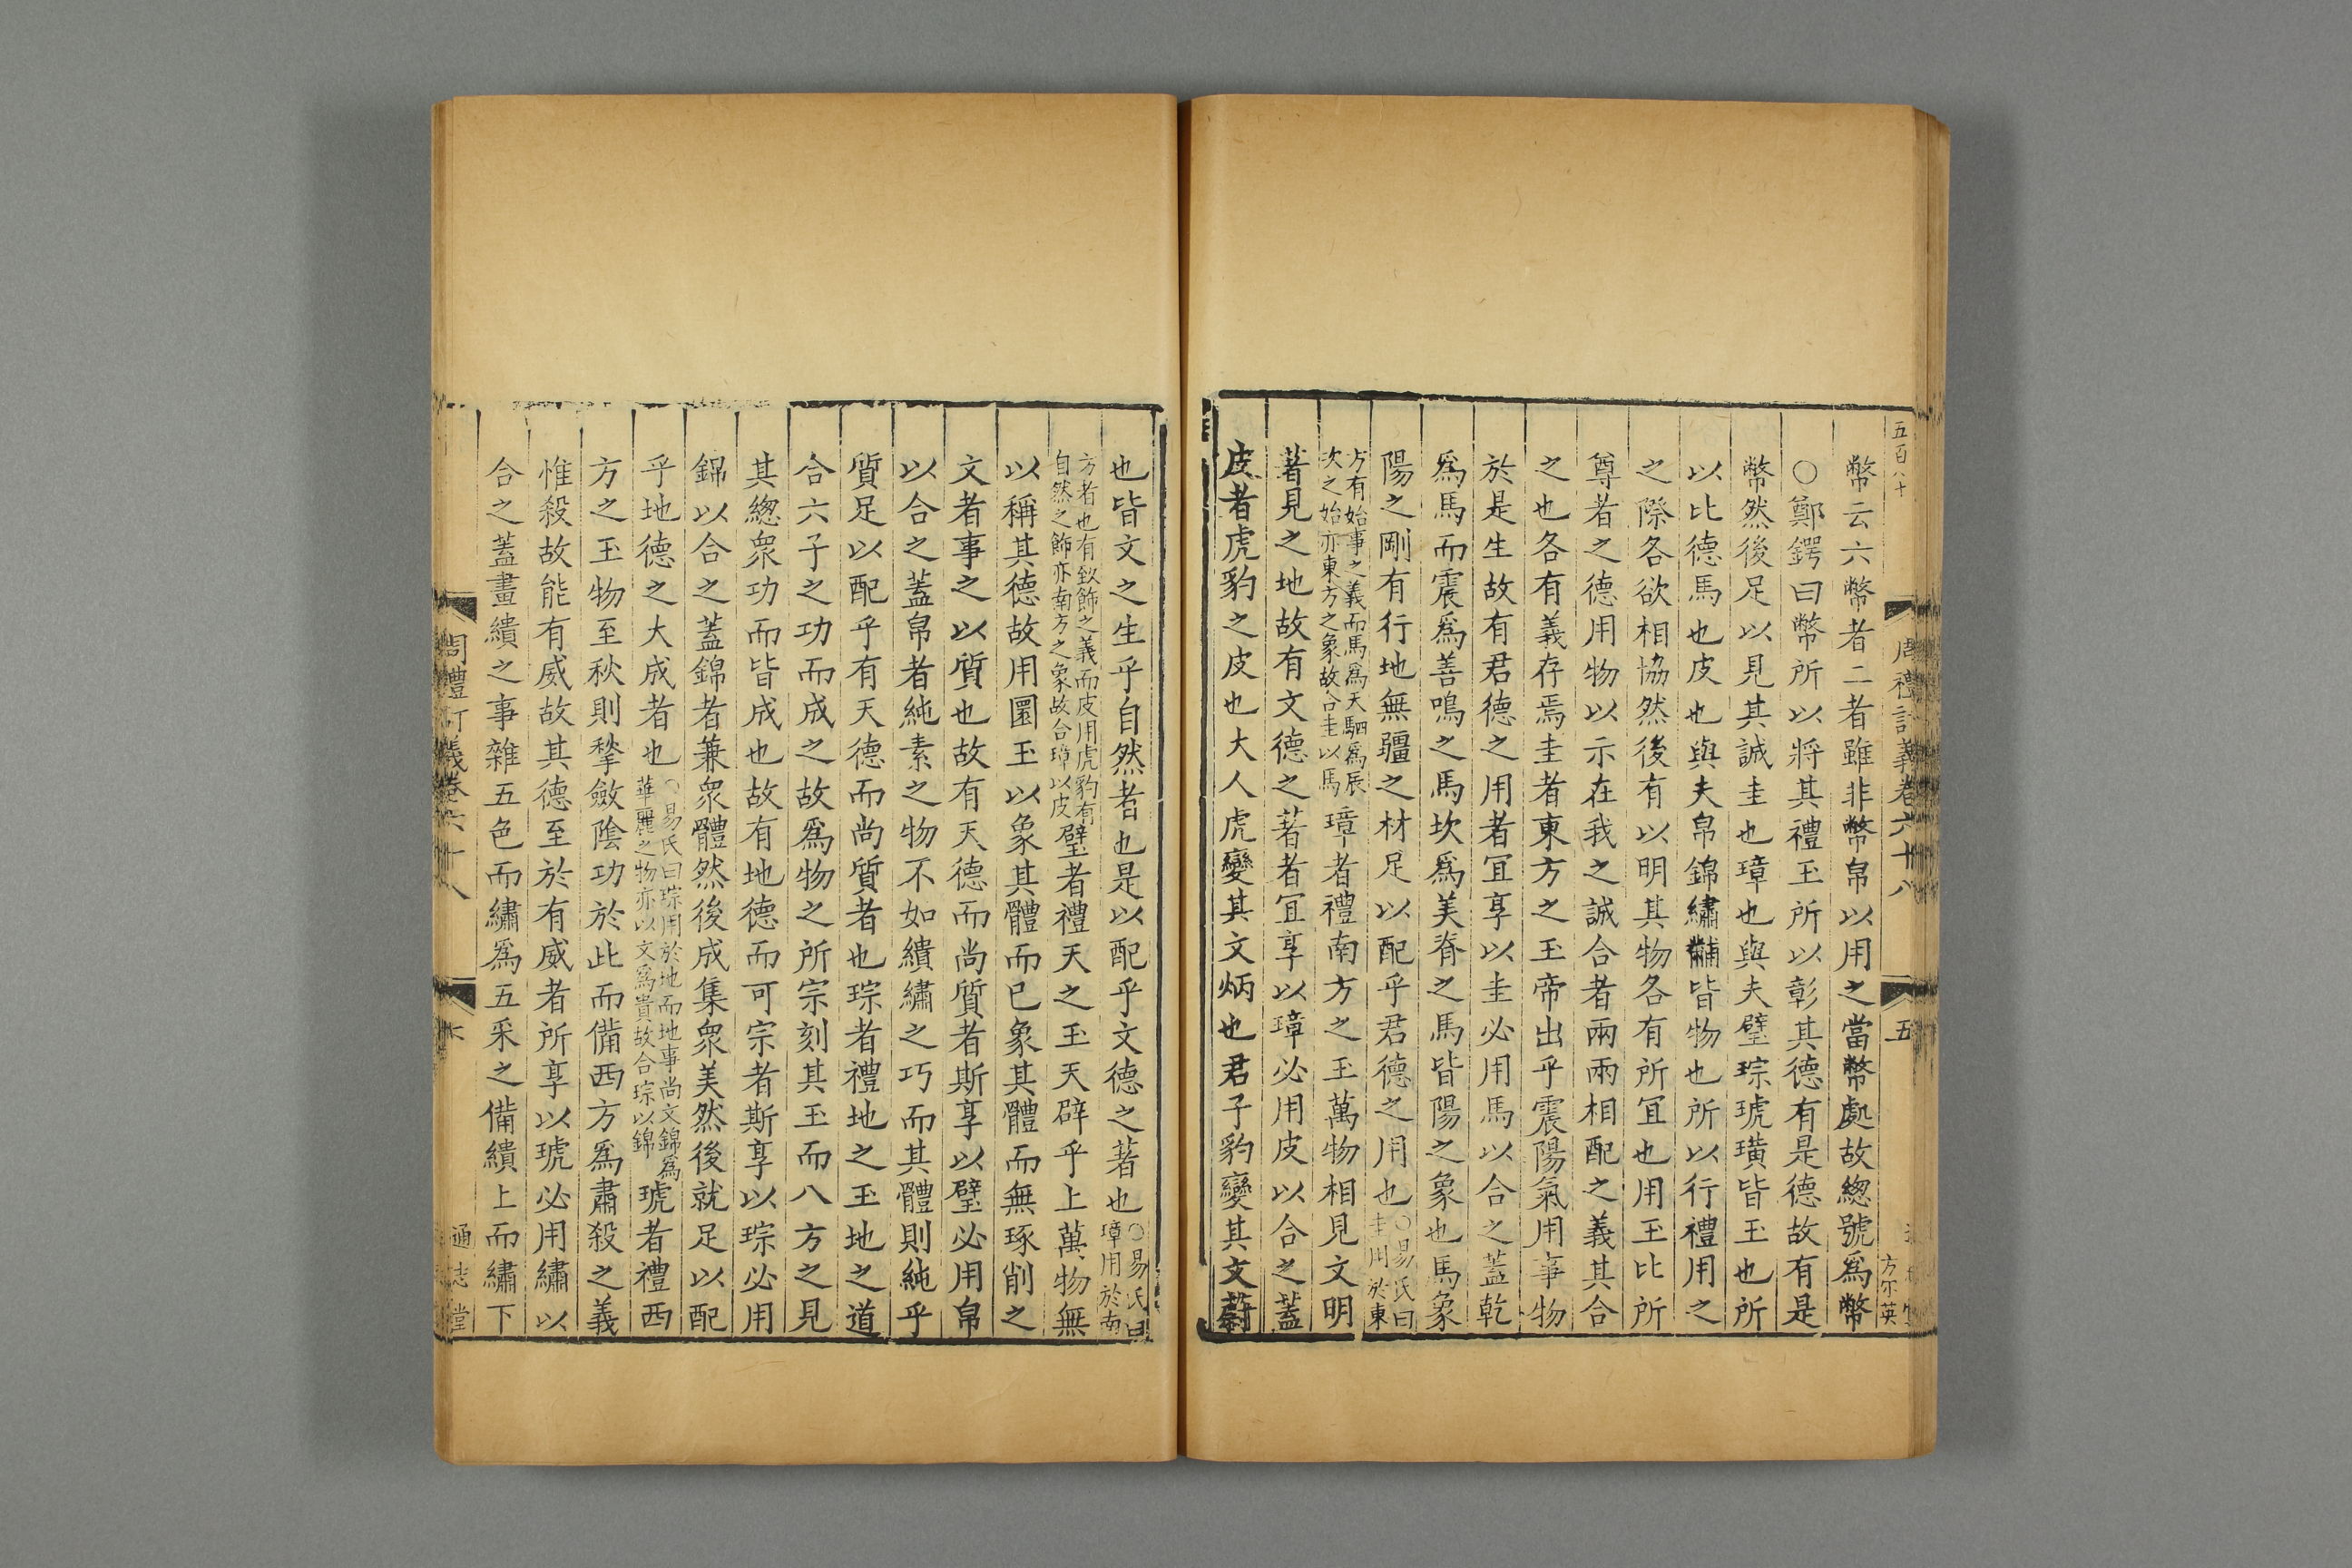 五百八十
周禮訂義卷六十八
五
方尔英
幣云六幣者二者雖非幣帛以用之當幣處故緫號爲幣
○鄭鍔曰幣所以將其禮玉所以彰其德有是德故有是
幣然後足以見其誠圭也璋也與夫璧琮琥璜皆玉也所
以比德馬也皮也與夫帛錦繡黼皆物也所以行禮用之
之際各欲相協然後有以明其物各有所宜也用玉比所
尊者之德用物以示在我之誠合者兩兩相配之義其合
之也各有義存焉圭者東方之玉帝出乎震陽氣用事物
於是生故有君德之用者宜享以圭必用馬以合之蓋乾
爲馬而震爲善鳴之馬坎爲美脊之馬皆陽之象也馬象
陽之剛有行地無疆之材足以配乎君德之用也○易氏曰圭用於東
方有始事之義而馬爲天駟爲辰次之始亦東方之象故合圭以馬璋者禮南方之玉萬物相見文明
著見之地故有文德之著者宜享以璋必用皮以合之蓋
皮者虎豹之皮也大人虎變其文炳也君子豹變其文蔚
也皆文之生乎自然者也是以配乎文德之著也○易氏曰璋用於南
方者也有致飾之義而皮用虎豹有自然之飾亦南方之象故合璋以皮璧者禮天之玉天辟乎上萬物無
以稱其德故用圜玉以象其體而已象其體而無琢削之
文者事之以質也故有天德而尚質者斯享以璧必用帛
以合之蓋帛者純素之物不如繢繡之巧而其體則純乎
質足以配乎有天德而尚質者也琮者禮地之玉地之道
合六子之功而成之故爲物之所宗刻其玉而八方之見
其緫衆功而皆成也故有地德而可宗者斯享以琮必用
錦以合之蓋錦者兼衆體然後成集衆美然後就足以配
乎地德之大成者也○易氏曰琮用於地而地事尚文錦爲華麗之物亦以文爲貴故合琮以錦琥者禮西
方之玉物至秋則揫斂陰功於此而備西方爲肅殺之義
惟殺故能有威故其德至於有威者所享以琥必用繡以
合之蓋畫繢之事雜五色而繡爲五采之備繢上而繡下
周禮訂義卷六十八
通志堂